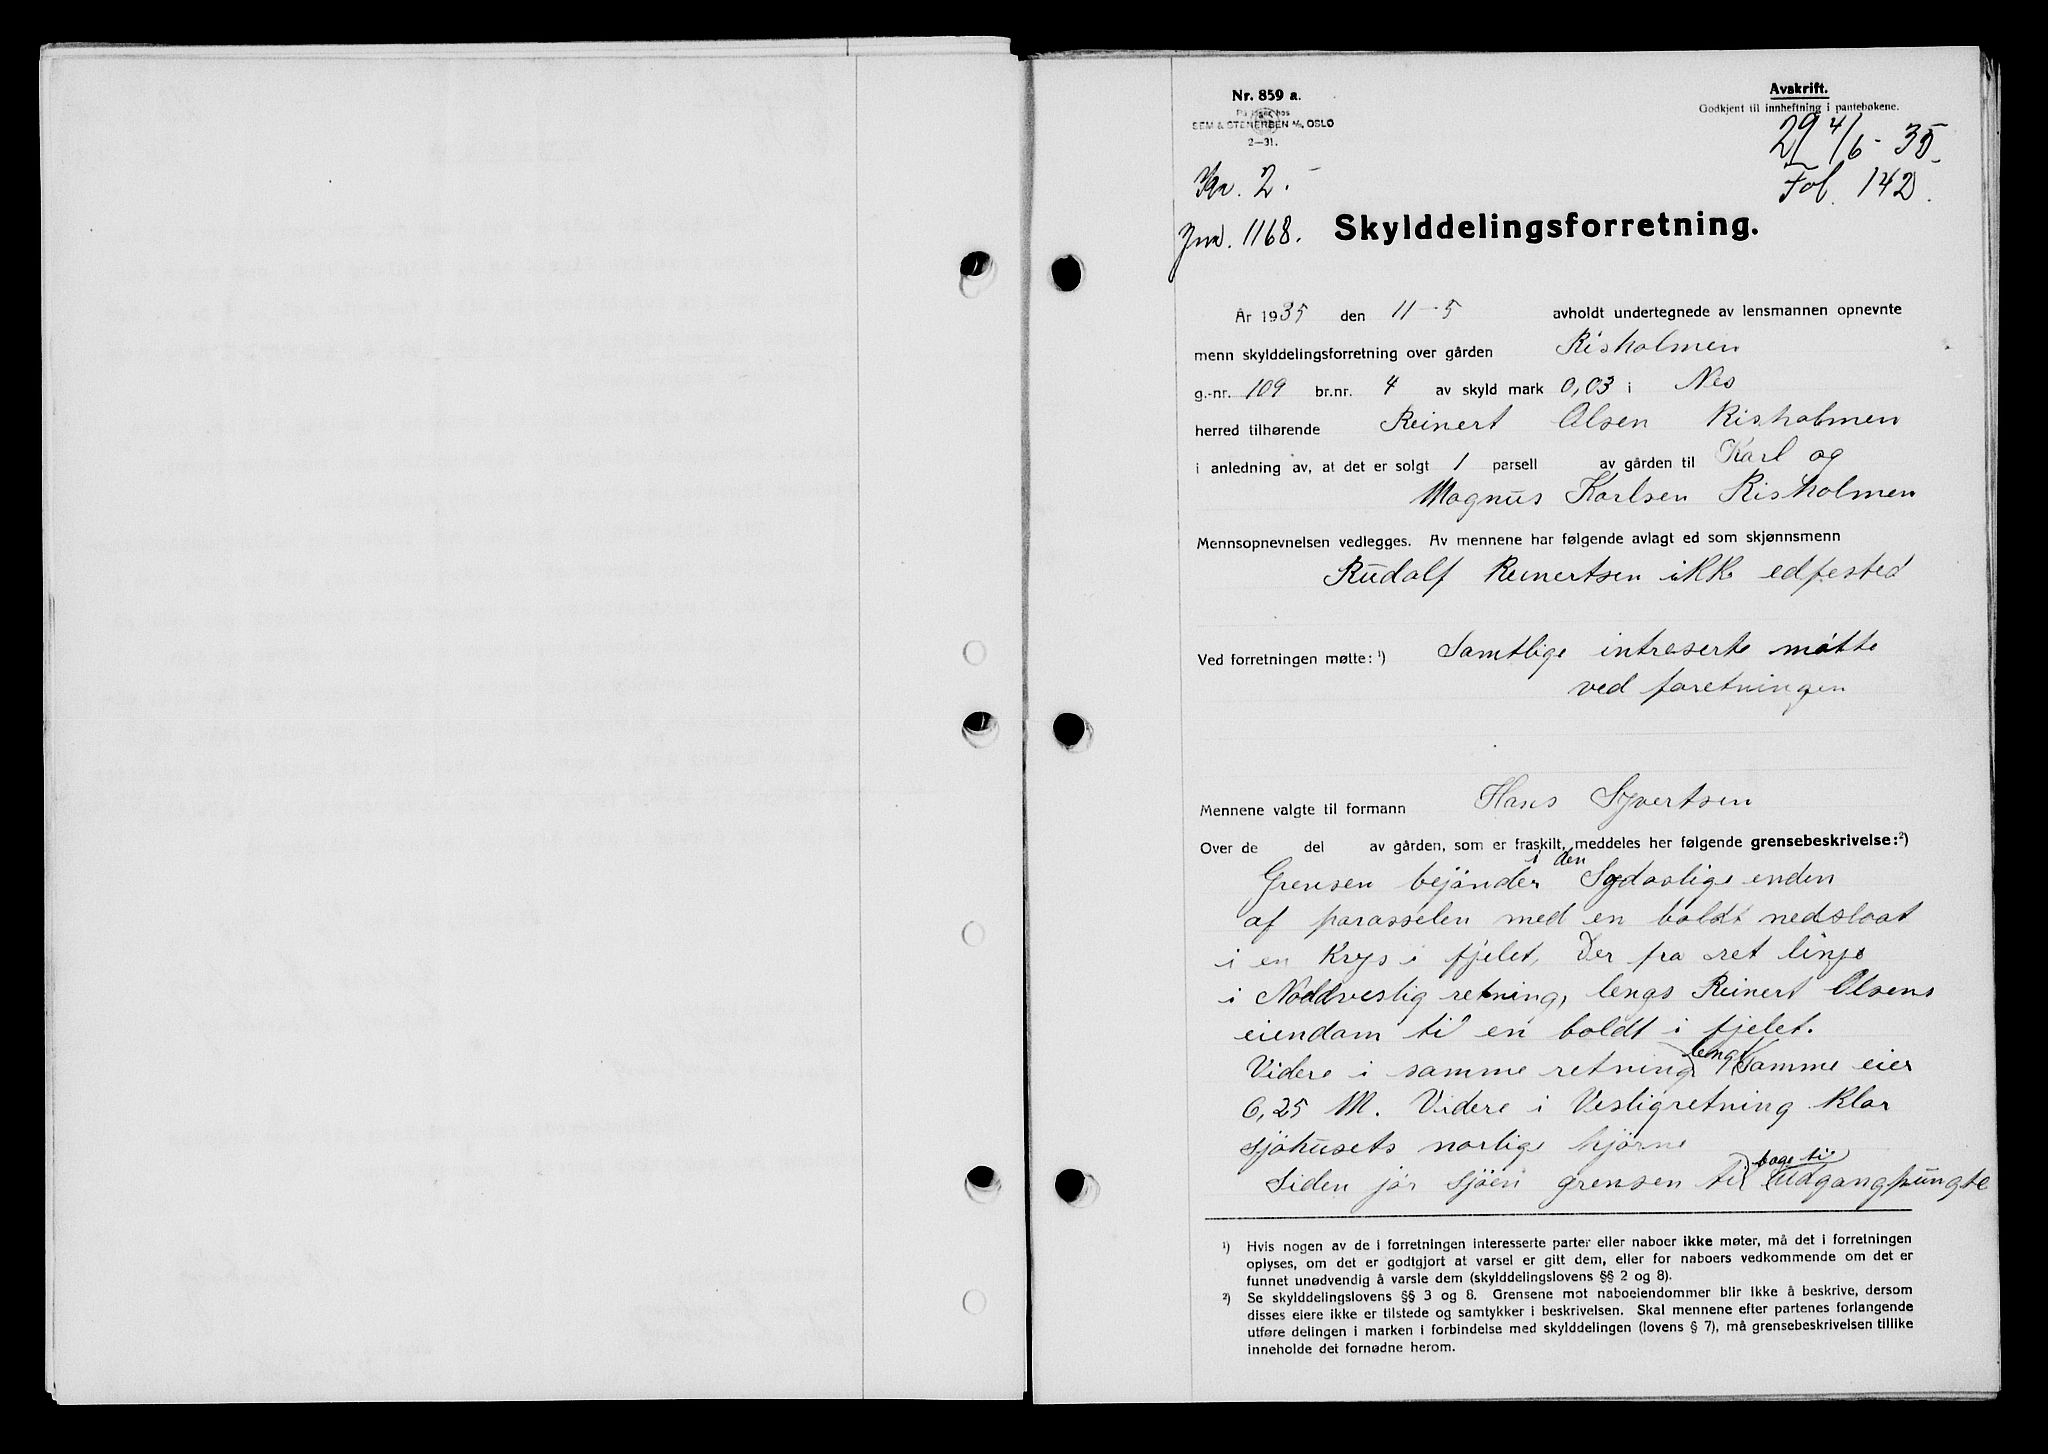 Nr. 859 a.
På lager hos
SEM & STENERSEN A/S, OSLO
2—31.
Avskrift.
Godkjent til innheftning i pantebøkene.
29 4/6 - 35.
Fol. 142.
Kr. 2.-
Jnr. 1168.
Skylddelingsforretning.
År 1935 den 11-5 avholdt undertegnede av lensmannen opnevnte
menn skylddelingsforretning over gården Risholmen
g.-nr. 109 br.nr. 4 av skyld mark 0,03 i Nes
herred tilhørende Reinert Olsen Risholmen
i anledning av, at det er solgt 1 parsell av gården til Karl og
Magnus Karlsen Risholmen
Mennsopnevnelsen vedlegges. Av mennene har følgende avlagt ed som skjønnsmenn
Rudolf Reinertsen ikke edfested
Ved forretningen møtte: ¹) Samtlige intreserte møtte
ved foretningen
Mennene valgte til formann Hans Syvertsen
Over de del av gården, som er fraskilt, meddeles her følgende grensebeskrivelse: ²)
Grensen bejönder i den Sydøslige enden
af parasselen med en boldt nedslaat
i en Krys i fjelet, Der fra ret linje
i Noddveslig retning, lengs Reinert Olsens
eiendom til en boldt i fjelet.
Videre i samme retning lengs Samme eier
6,25 M. Videre i Vesligretning Klar
sjöhusets norlige hjörne
Siden jör Sjöen grensen til bage til udgangpungte
¹) Hvis nogen av de i forretningen interesserte parter eller naboer ikke møter, må det i forretningen
oplyses, om det er godtgjort at varsel er gitt dem, eller for naboers vedkommende om det er
funnet unødvendig å varsle dem (skylddelingslovens §§ 2 og 8).
²) Se skylddelingslovens §§ 3 og 8. Grensene mot naboeiendommer blir ikke å beskrive, dersom
disses eiere ikke er tilstede og samtykker i beskrivelsen. Skal mennene efter partenes forlangende
utføre delingen i marken i forbindelse med skylddelingen (lovens § 7), må grensebeskrivelsen tillike
inneholde det fornødne herom.